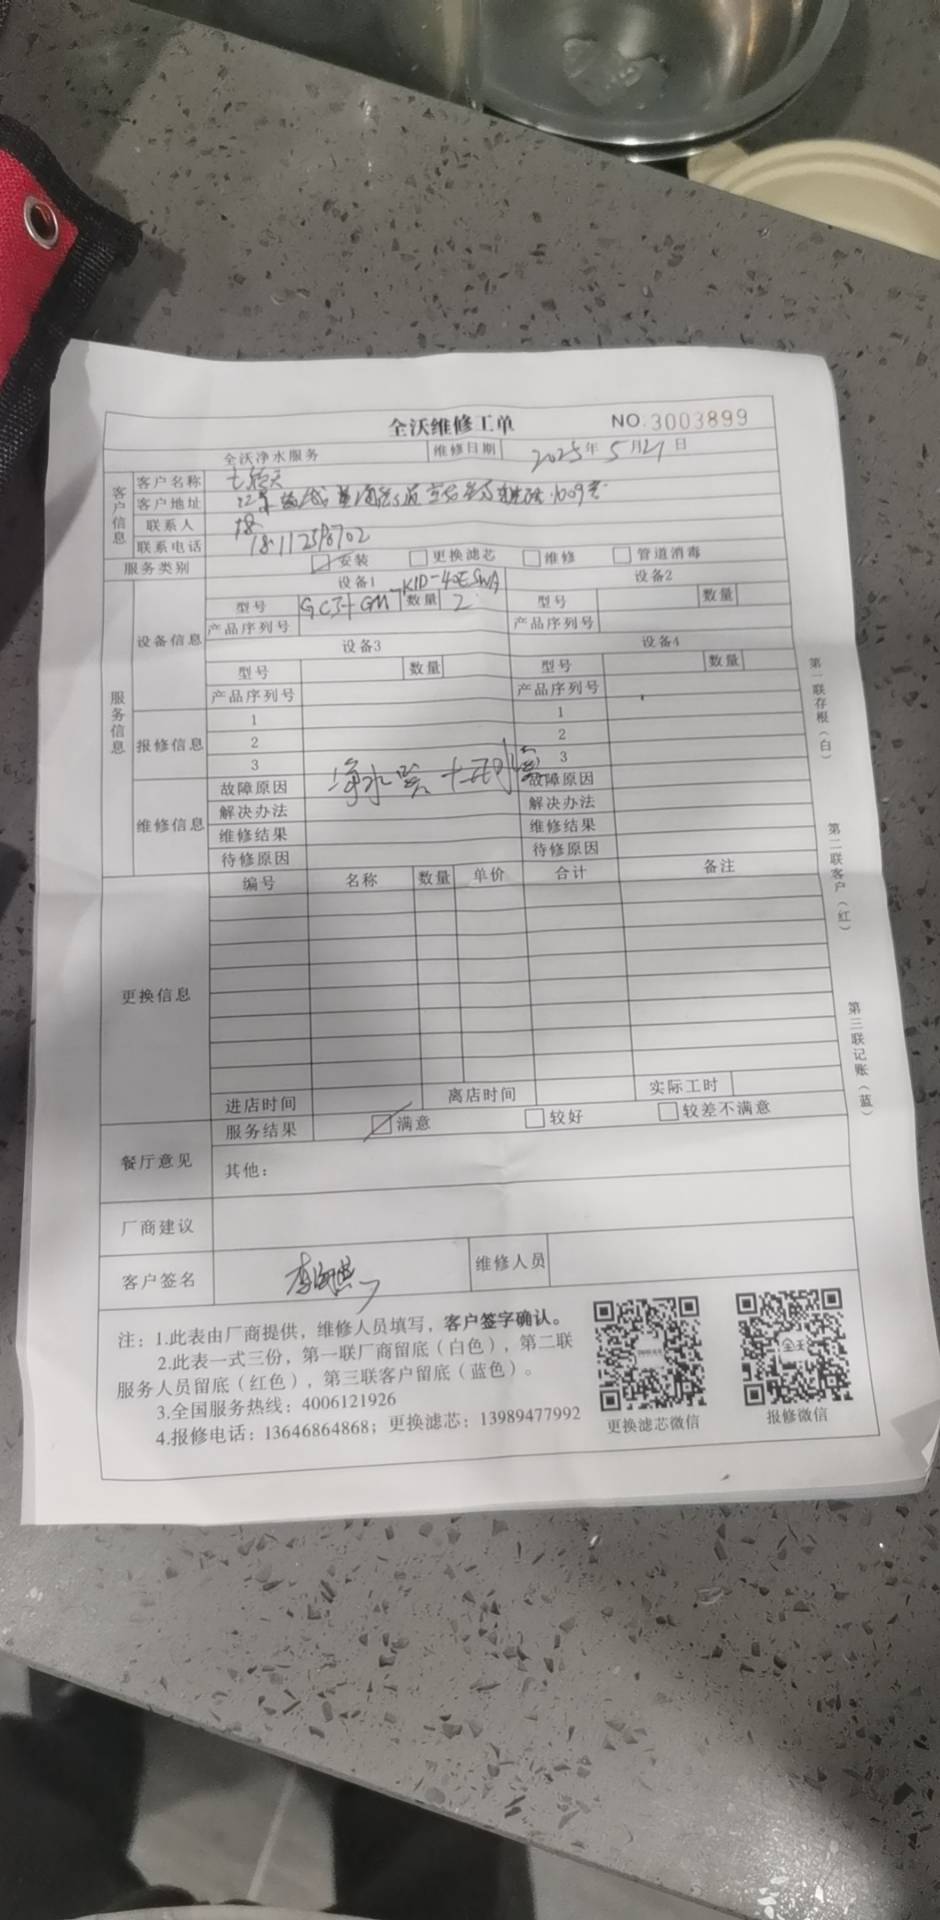 全沃维修工单 NO.3003899
全沃净水服务 维修日期 2025年5月21日
客户信息
客户名称 七欣天
客户地址
联系人
联系电话 18112598702
服务类别 安装 更换滤芯 维修 管道消毒
服务信息
设备信息
设备1 设备2
型号 数量 2 型号 数量
产品序列号 产品序列号
设备3 设备4
型号 数量 型号 数量
产品序列号 产品序列号
报修信息
1 1
2 2
3 3
净水器+开水器
维修信息
故障原因 故障原因
解决办法 解决办法
维修结果 维修结果
待修原因 待修原因
更换信息
编号 名称 数量 单价 合计 备注
进店时间 离店时间 实际工时
餐厅意见
服务结果 满意 较好 较差不满意
其他：
厂商建议
客户签名 维修人员
注：1.此表由厂商提供，维修人员填写，客户签字确认。
2.此表一式三份，第一联厂商留底（白色），第二联
服务人员留底（红色），第三联客户留底（蓝色）。
3.全国服务热线：4006121926
4.报修电话：13646864868；更换滤芯：13989477992
更换滤芯微信 报修微信
第一联存根（白）
第二联客户（红）
第三联记账（蓝）